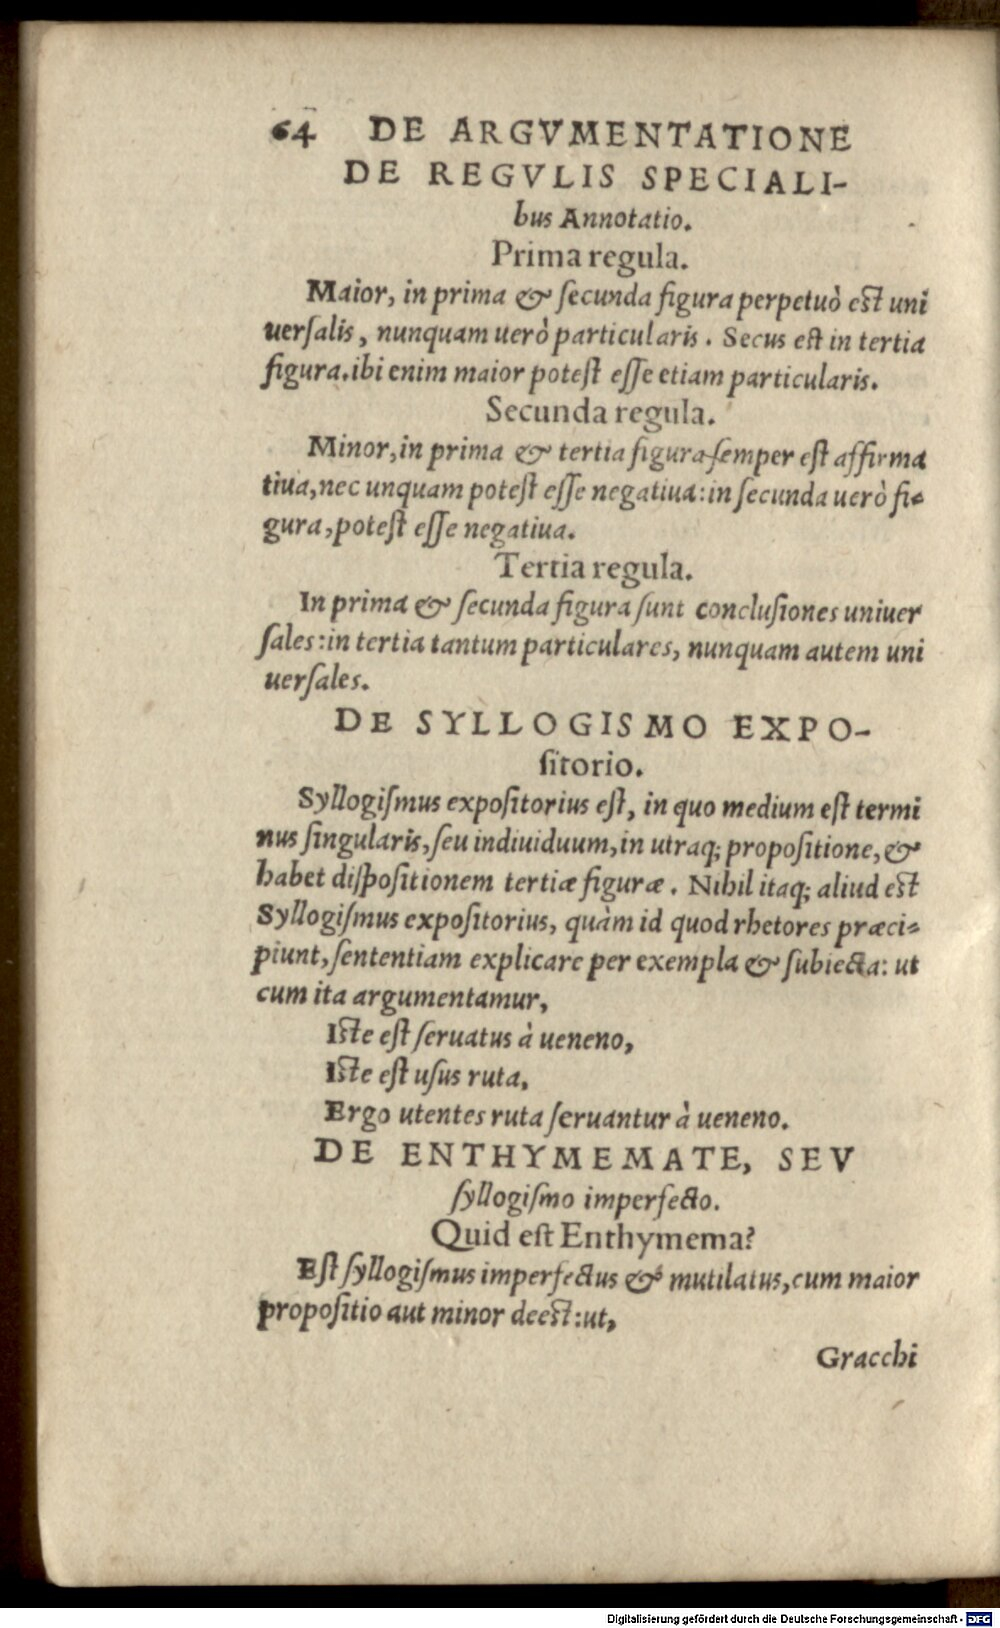 64 DE ARGVMENTATIONE
DE REGVLIS SPECIALI-
bus Annotatio.
Prima regula.
Maior, in prima & ſecunda figura perpetuò eſt uni
uerſalis, nunquam uerò particularis. Secus eſt in tertia
figura. ibi enim maior poteſt eſſe etiam particularis.
Secunda regula.
Minor, in prima & tertia figura ſemper eſt affirma
tiua, nec unquam poteſt eſſe negatiua: in ſecunda uerò fi-
gura, poteſt eſſe negatiua.
Tertia regula.
In prima & ſecunda figura ſunt concluſiones uniuer
ſales: in tertia tantum particulares, nunquam autem uni
uerſales.
DE SYLLOGISMO EXPO-
ſitorio.
Syllogiſmus expoſitorius eſt, in quo medium eſt termi
nus ſingularis, ſeu indiuiduum, in utraq; propoſitione, &
habet diſpoſitionem tertiæ figuræ. Nihil itaq; aliud eſt
Syllogiſmus expoſitorius, quàm id quod rhetores præci-
piunt, ſententiam explicare per exempla & ſubiecta: ut
cum ita argumentamur,
Iſte eſt ſeruatus à ueneno,
Iſte eſt uſus ruta,
Ergo utentes ruta ſeruantur à ueneno.
DE ENTHYMEMATE, SEV
ſyllogiſmo imperfecto.
Quid eſt Enthymema?
Eſt ſyllogiſmus imperfectus & mutilatus, cum maior
propoſitio aut minor deeſt: ut,
Gracchi
Digitalisierung gefördert durch die Deutsche Forschungsgemeinschaft - DFG